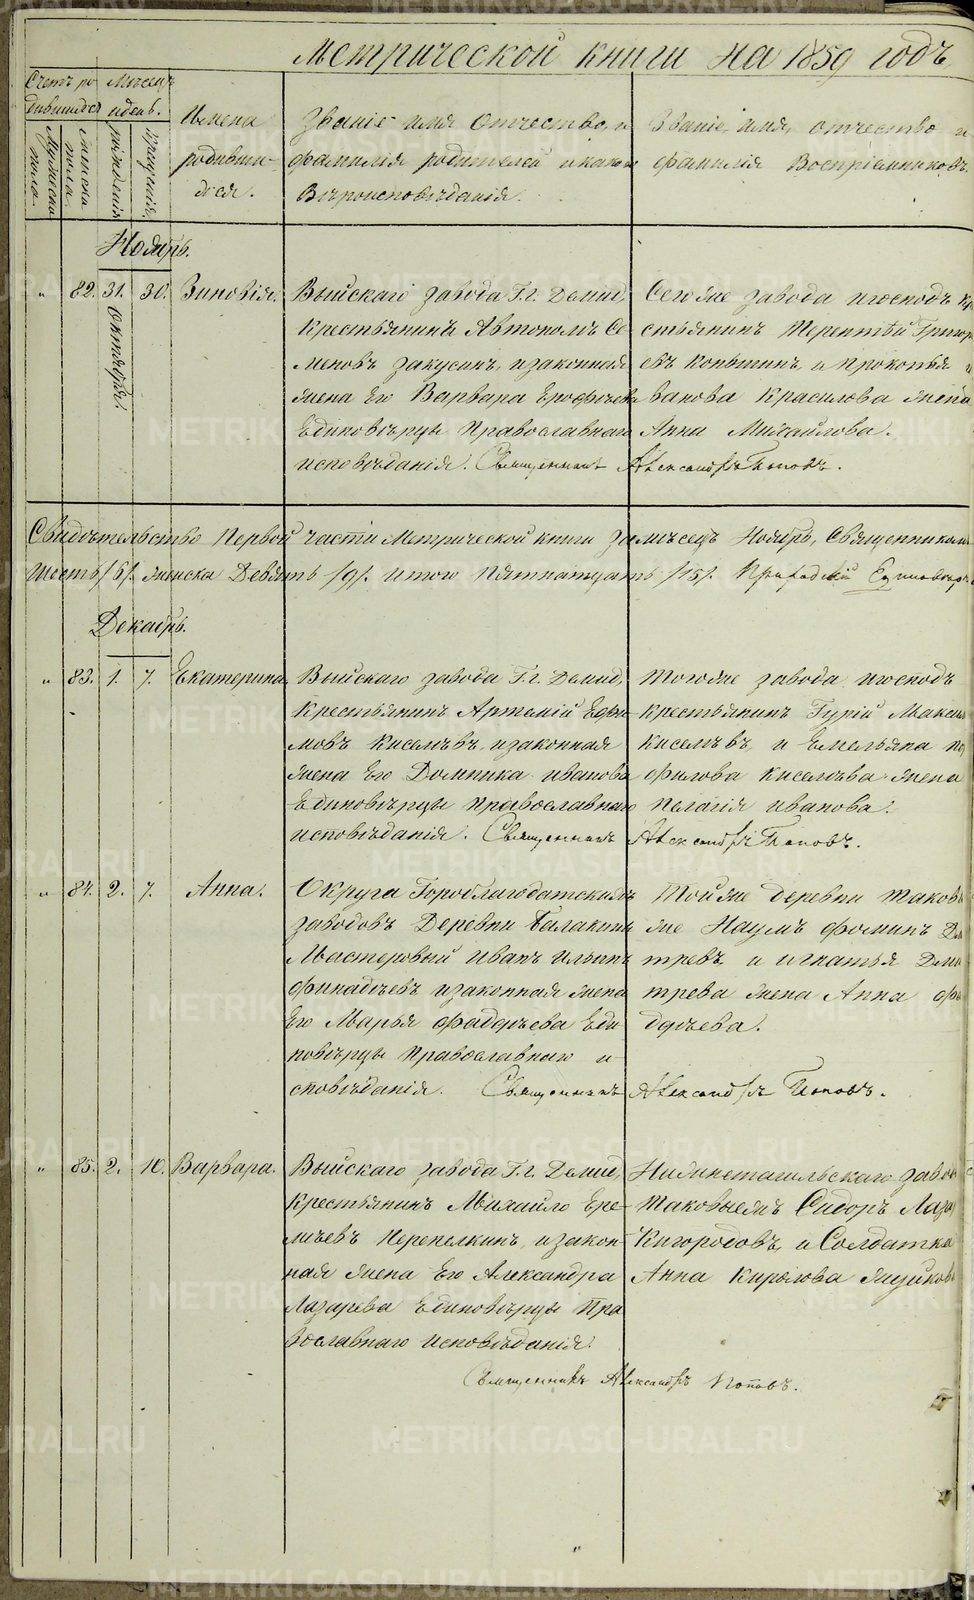 Метрической книги на 1859 годъ
Счетъ ро Мѣсяцъ
дившихся и день.
Мужеска пола.
женска пола.
рожденія
крещенія.
Имена
родивши-
хся.
Званіе имя отчество, и
фамилія родителей и какого
Вѣроисповѣданія.
Званіе, имя, отчество и
фамилія Воспріемниковъ.
Ноябрь.
" 82. 31. 30. Зиновія.
октября.
Выйскаго завода Г.г. Демид.
крестьянинъ Автономъ Се
меновъ Закусинъ, и законная
жена Его Варвара Ерофѣева
Единовѣрцы Православнаго
исповѣданія. Священникъ Александръ Поповъ.
Сего же завода и господъ кр
стьянинъ Терентій Григор
евъ Копытинъ, и Прокопья и
ванова Красилова жена
Анна Михайлова.
Свидѣтельство Первой части Метрической книги за мѣсяцъ Ноябрь, Священником
Шесть /6/. женска Девять /9/. итого пятнатцать /15/. Приходскій Единовѣр
Декабрь.
" 83. 1. 7. Екатерина
Выйскаго завода Г.г. Демид.
Крестьянинъ Артемій Ефи-
мовъ Киселевъ, и законная
жена Его Домника иванова
Единовѣрцы православнаго
исповѣданія. Священникъ Александръ Поповъ.
Того же завода и господъ
крестьянинъ Гурій Макси
Киселевъ, и Емельяна
филова Киселева жена
Пелагія иванова.
" 84. 2. 7. Анна.
Округа Гороблагодатскихъ
заводовъ Деревни Балакины
Мастеровый иванъ ильинъ
законная жена
Его Марья фадѣева Еди
новѣрцы православнаго и
сповѣданія. Священникъ Александръ Поповъ.
Той же деревни таков
же Наумъ фоминъ Дм
тревъ, и игнатья Дми
трева жена Анна фа
дѣева.
" 85. 2. 10. Варвара.
Выйскаго завода Г.г. Демид.
Крестьянинъ Михайло Ере-
мѣевъ Перепелкинъ, и закон
ная жена Его Александра
Лазарева Единовѣрцы Пра
вославнаго исповѣданія.
Священникъ Александръ Поповъ.
Нижнетагильскаго завод
таковыежъ Сидоръ Лаза
и Солдатка
Анна Кирилова
METRIKI.GASO-URAL.RU